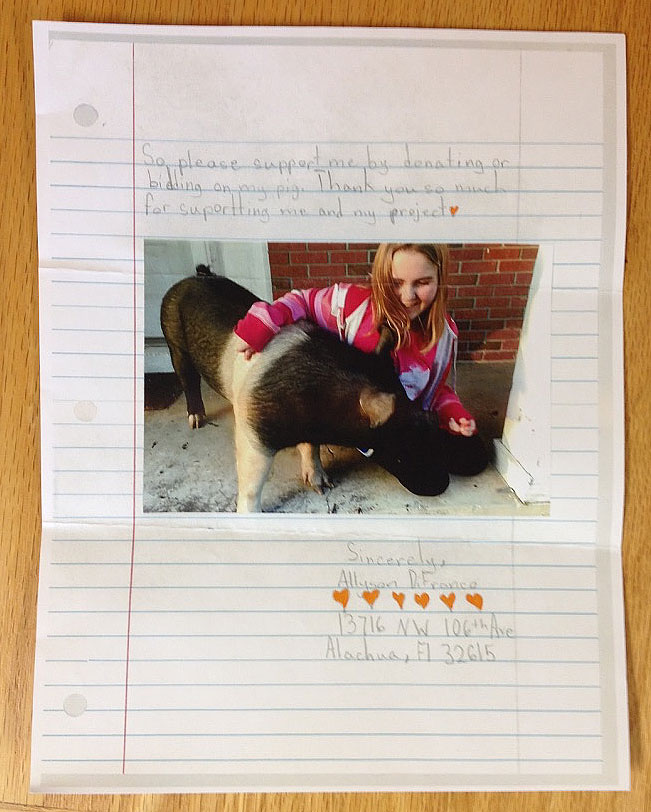 So please support me by donating or
bidding on my pig. Thank you so much
for suportting me and my project
Sincerely,
Allyson DiFranco
13716 NW 106th Ave
Alachua, Fl 32615